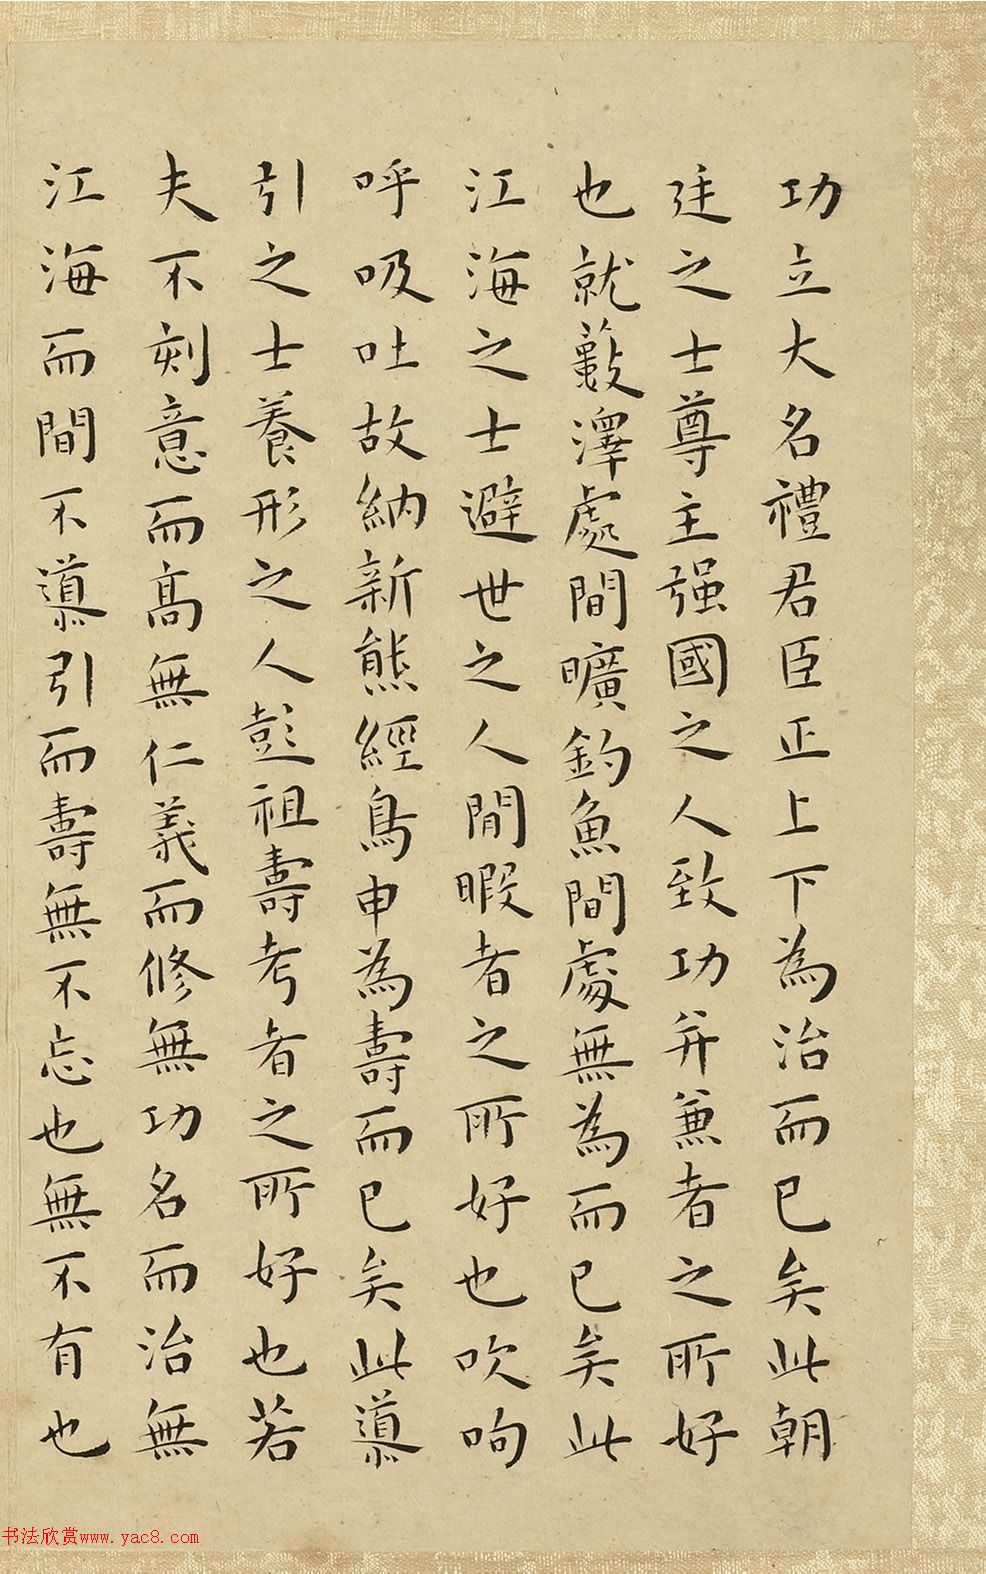 功立大名禮君臣正上下為治而已矣此朝
廷之士尊主强國之人致功并兼者之所好
也就藪澤處間曠釣魚間處無為而已矣此
江海之士避世之人閒暇者之所好也吹呴
呼吸吐故納新熊經鳥申為壽而已矣此導
引之士養形之人彭祖壽考者之所好也若
夫不刻意而高無仁義而修無功名而治無
江海而間不導引而壽無不忘也無不有也
书法欣赏www.yac8.com